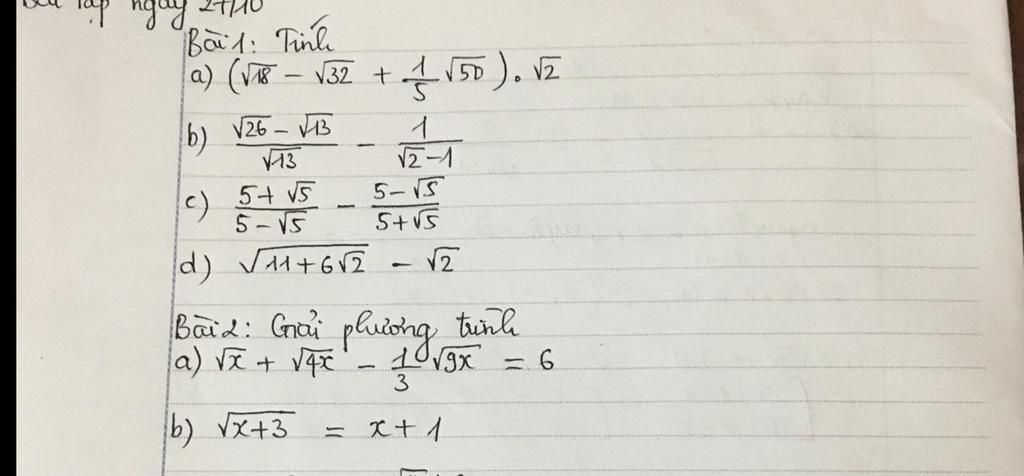 Bài tập ngày 27/10
Bài 1: Tính
a) (√18 − √32 + 1/5 √50) . √2
b) (√26 − √13)/√13 − 1/(√2 − 1)
c) (5 + √5)/(5 − √5) − (5 − √5)/(5 + √5)
d) √(11 + 6√2) − √2
Bài 2: Giải phương trình
a) √x + √4x − 1/3 √9x = 6
b) √(x + 3) = x + 1